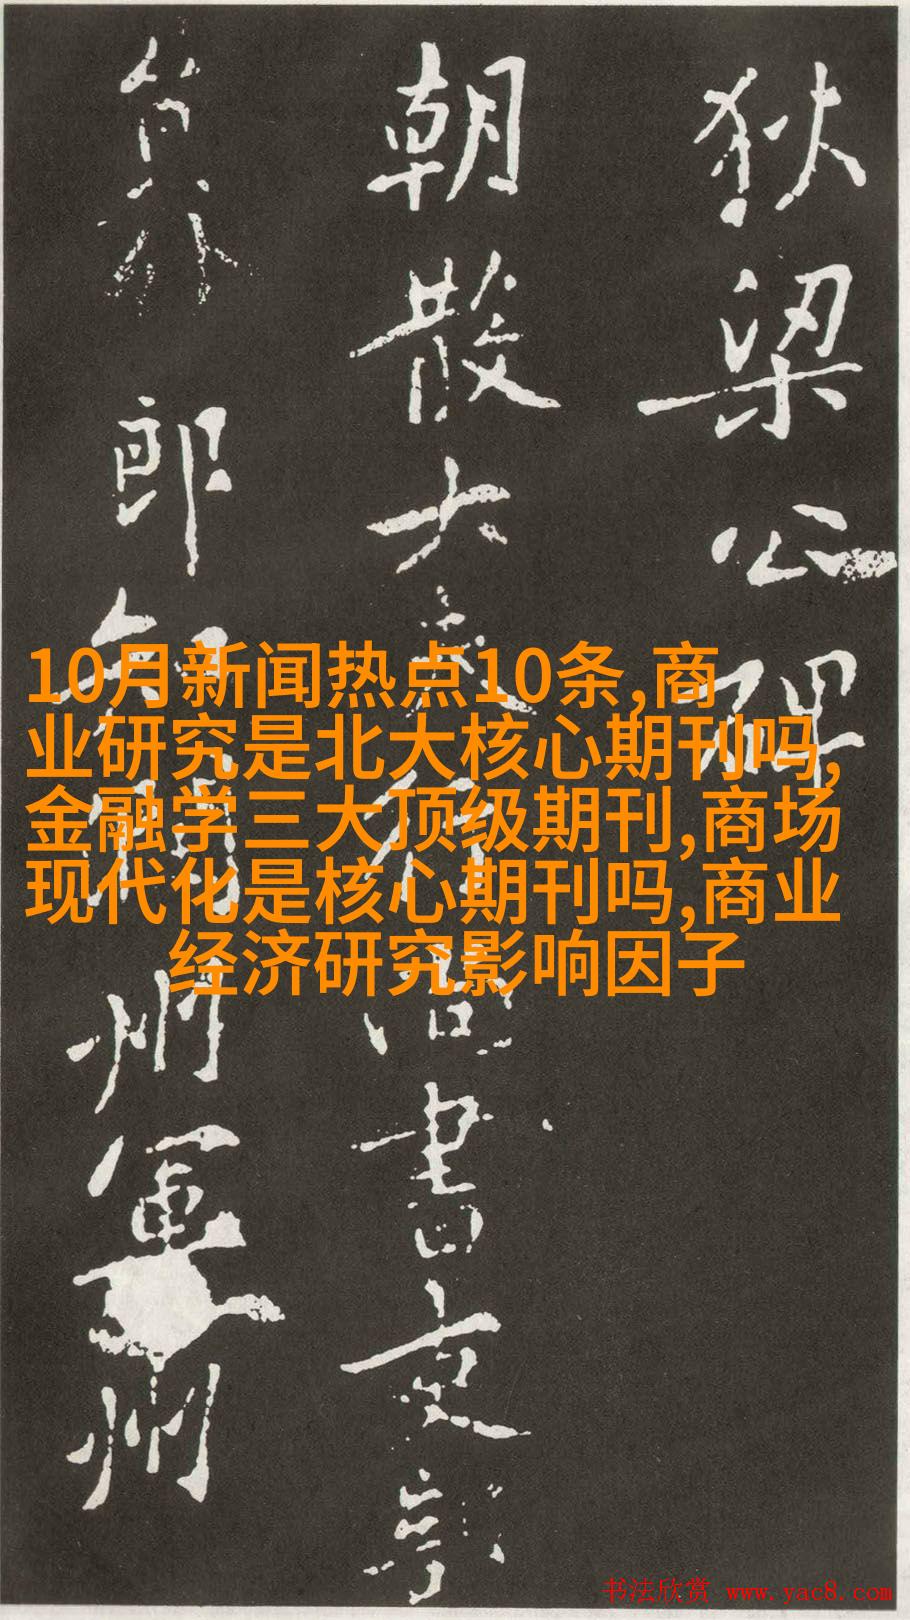 狄梁公碑
朝散大夫行尚書吏部
員外郎知潤州軍州
10月新闻热点10条,商
业研究是北大核心期刊吗,
金融学三大顶级期刊,商场
现代化是核心期刊吗,商业
经济研究影响因子
书法欣赏 www.yac8.com